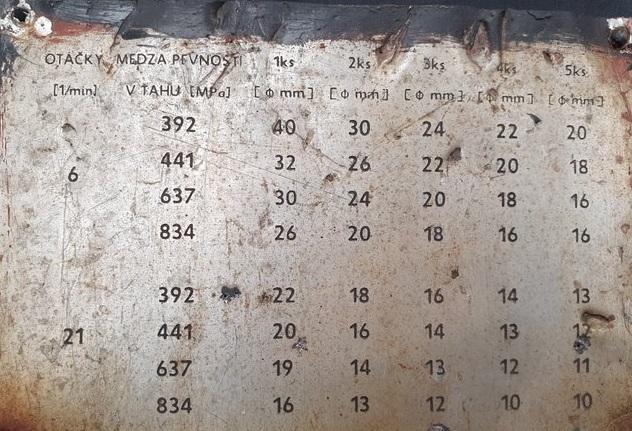 OTÁČKY MEDZA PEVNOSTI 1ks 2ks 3ks 4ks 5ks
[1/min] V ŤAHU [MPa] [Φ mm] [Φ mm] [Φ mm] [Φ mm] [Φ mm]
392 40 30 24 22 20
441 32 26 22 20 18
6
637 30 24 20 18 16
834 26 20 18 16 16
392 22 18 16 14 13
21 441 20 16 14 13 12
637 19 14 13 12 11
834 16 13 12 10 10